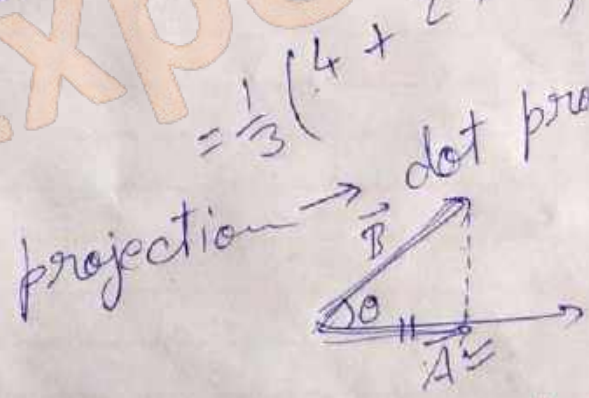 xpe
= 1/3 (4 +
projection → dot pro
B⃗
θ
A⃗